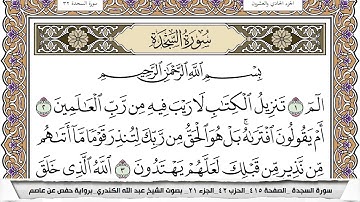 الجزء الحادي والعشرون
سورة السجدة ٣٢
سُورَةُ السَّجْدَةِ
بِسْمِ اللَّهِ الرَّحْمَٰنِ الرَّحِيمِ
الٓمٓ ١ تَنزِيلُ الْكِتَابِ لَا رَيْبَ فِيهِ مِن رَّبِّ الْعَالَمِينَ ٢
أَمْ يَقُولُونَ افْتَرَاهُ ۚ بَلْ هُوَ الْحَقُّ مِن رَّبِّكَ لِتُنذِرَ قَوْمًا مَّا أَتَاهُم
مِّن نَّذِيرٍ مِّن قَبْلِكَ لَعَلَّهُمْ يَهْتَدُونَ ٣ اللَّهُ الَّذِي خَلَقَ
سورة السجدة _ الصفحة ٤١٥_ الحزب ٤٢_ الجزء ٢١_ بصوت الشيخ عبد الله الكندري_ برواية حفص عن عاصم